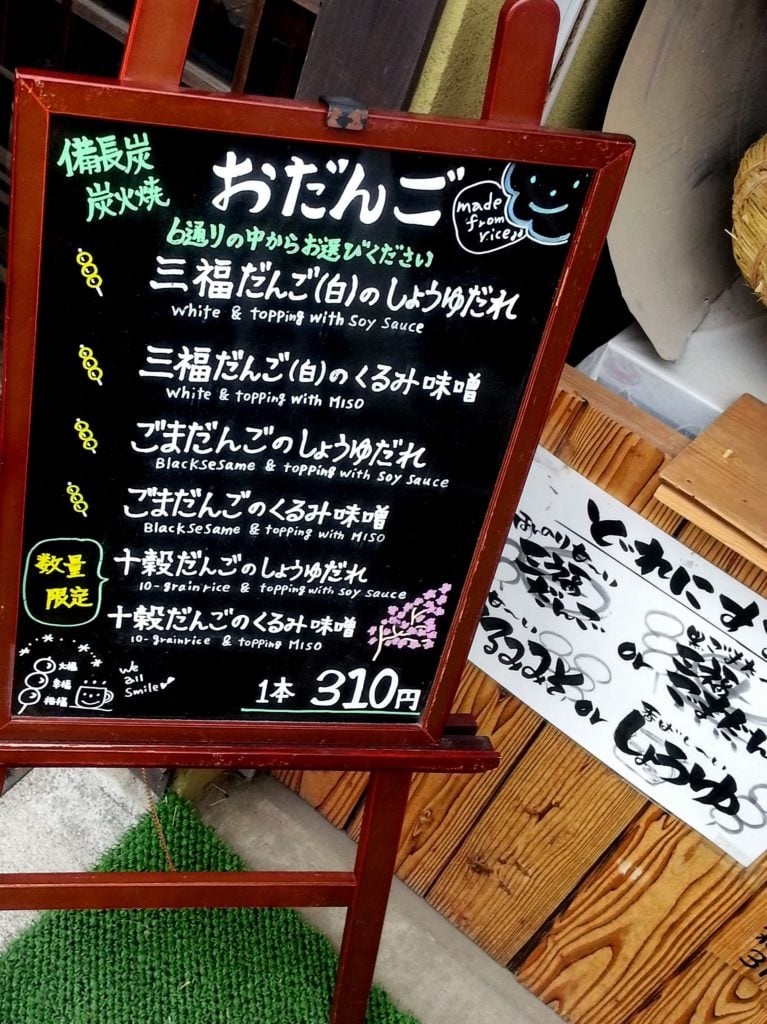 備長炭
炭火焼
おだんご
made
from
rice♪
6通りの中からお選びください
三福だんご(白)のしょうゆだれ
White & topping with Soy Sauce
三福だんご(白)のくるみ味噌
White & topping with MISO
ごまだんごのしょうゆだれ
BlackSesame & topping with Soy Sauce
ごまだんごのくるみ味噌
BlackSesame & topping with MISO
数量
限定
十穀だんごのしょうゆだれ
10-grain rice & topping with Soy Sauce
十穀だんごのくるみ味噌
10-grain rice & topping MISO
大福
幸福
We
all
Smile
1本 310円
どれにす
三福
だんご
or
ごまだん
くるみみそ or しょうゆ